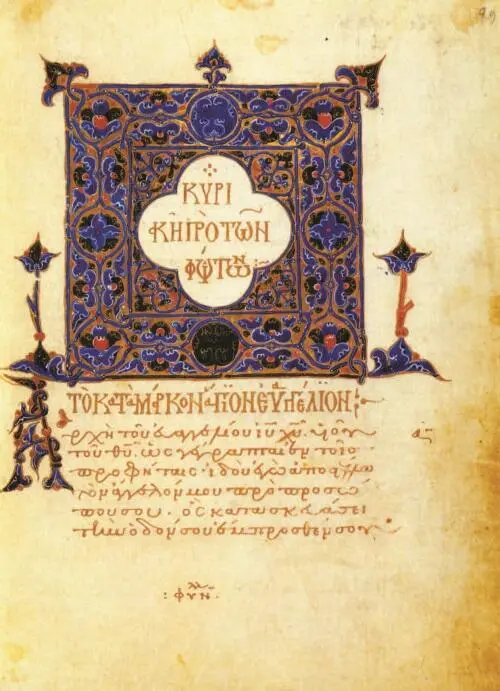 ΚΥΡΙ
ΚΗ ΠΡΟ ΤΩΝ
ΦΩΤΩΝ
ΤΟ ΚΑΤΑ ΜΑΡΚΟΝ ΑΓΙΟΝ ΕΥΑΓΓΕΛΙΟΝ
Αρχὴ τοῦ εὐαγγελίου ἰῦ χῦ υἱοῦ
τοῦ θῦ. ὡς γέγραπται ἐν τοῖς
προφήταις ἰδοὺ ἐγὼ ἀποστέλλω
τὸν ἄγγελόν μου πρὸ προσώ
που σου. ὃς κατασκευάσει
τὴν ὁδόν σου ἔμπροσθέν σου